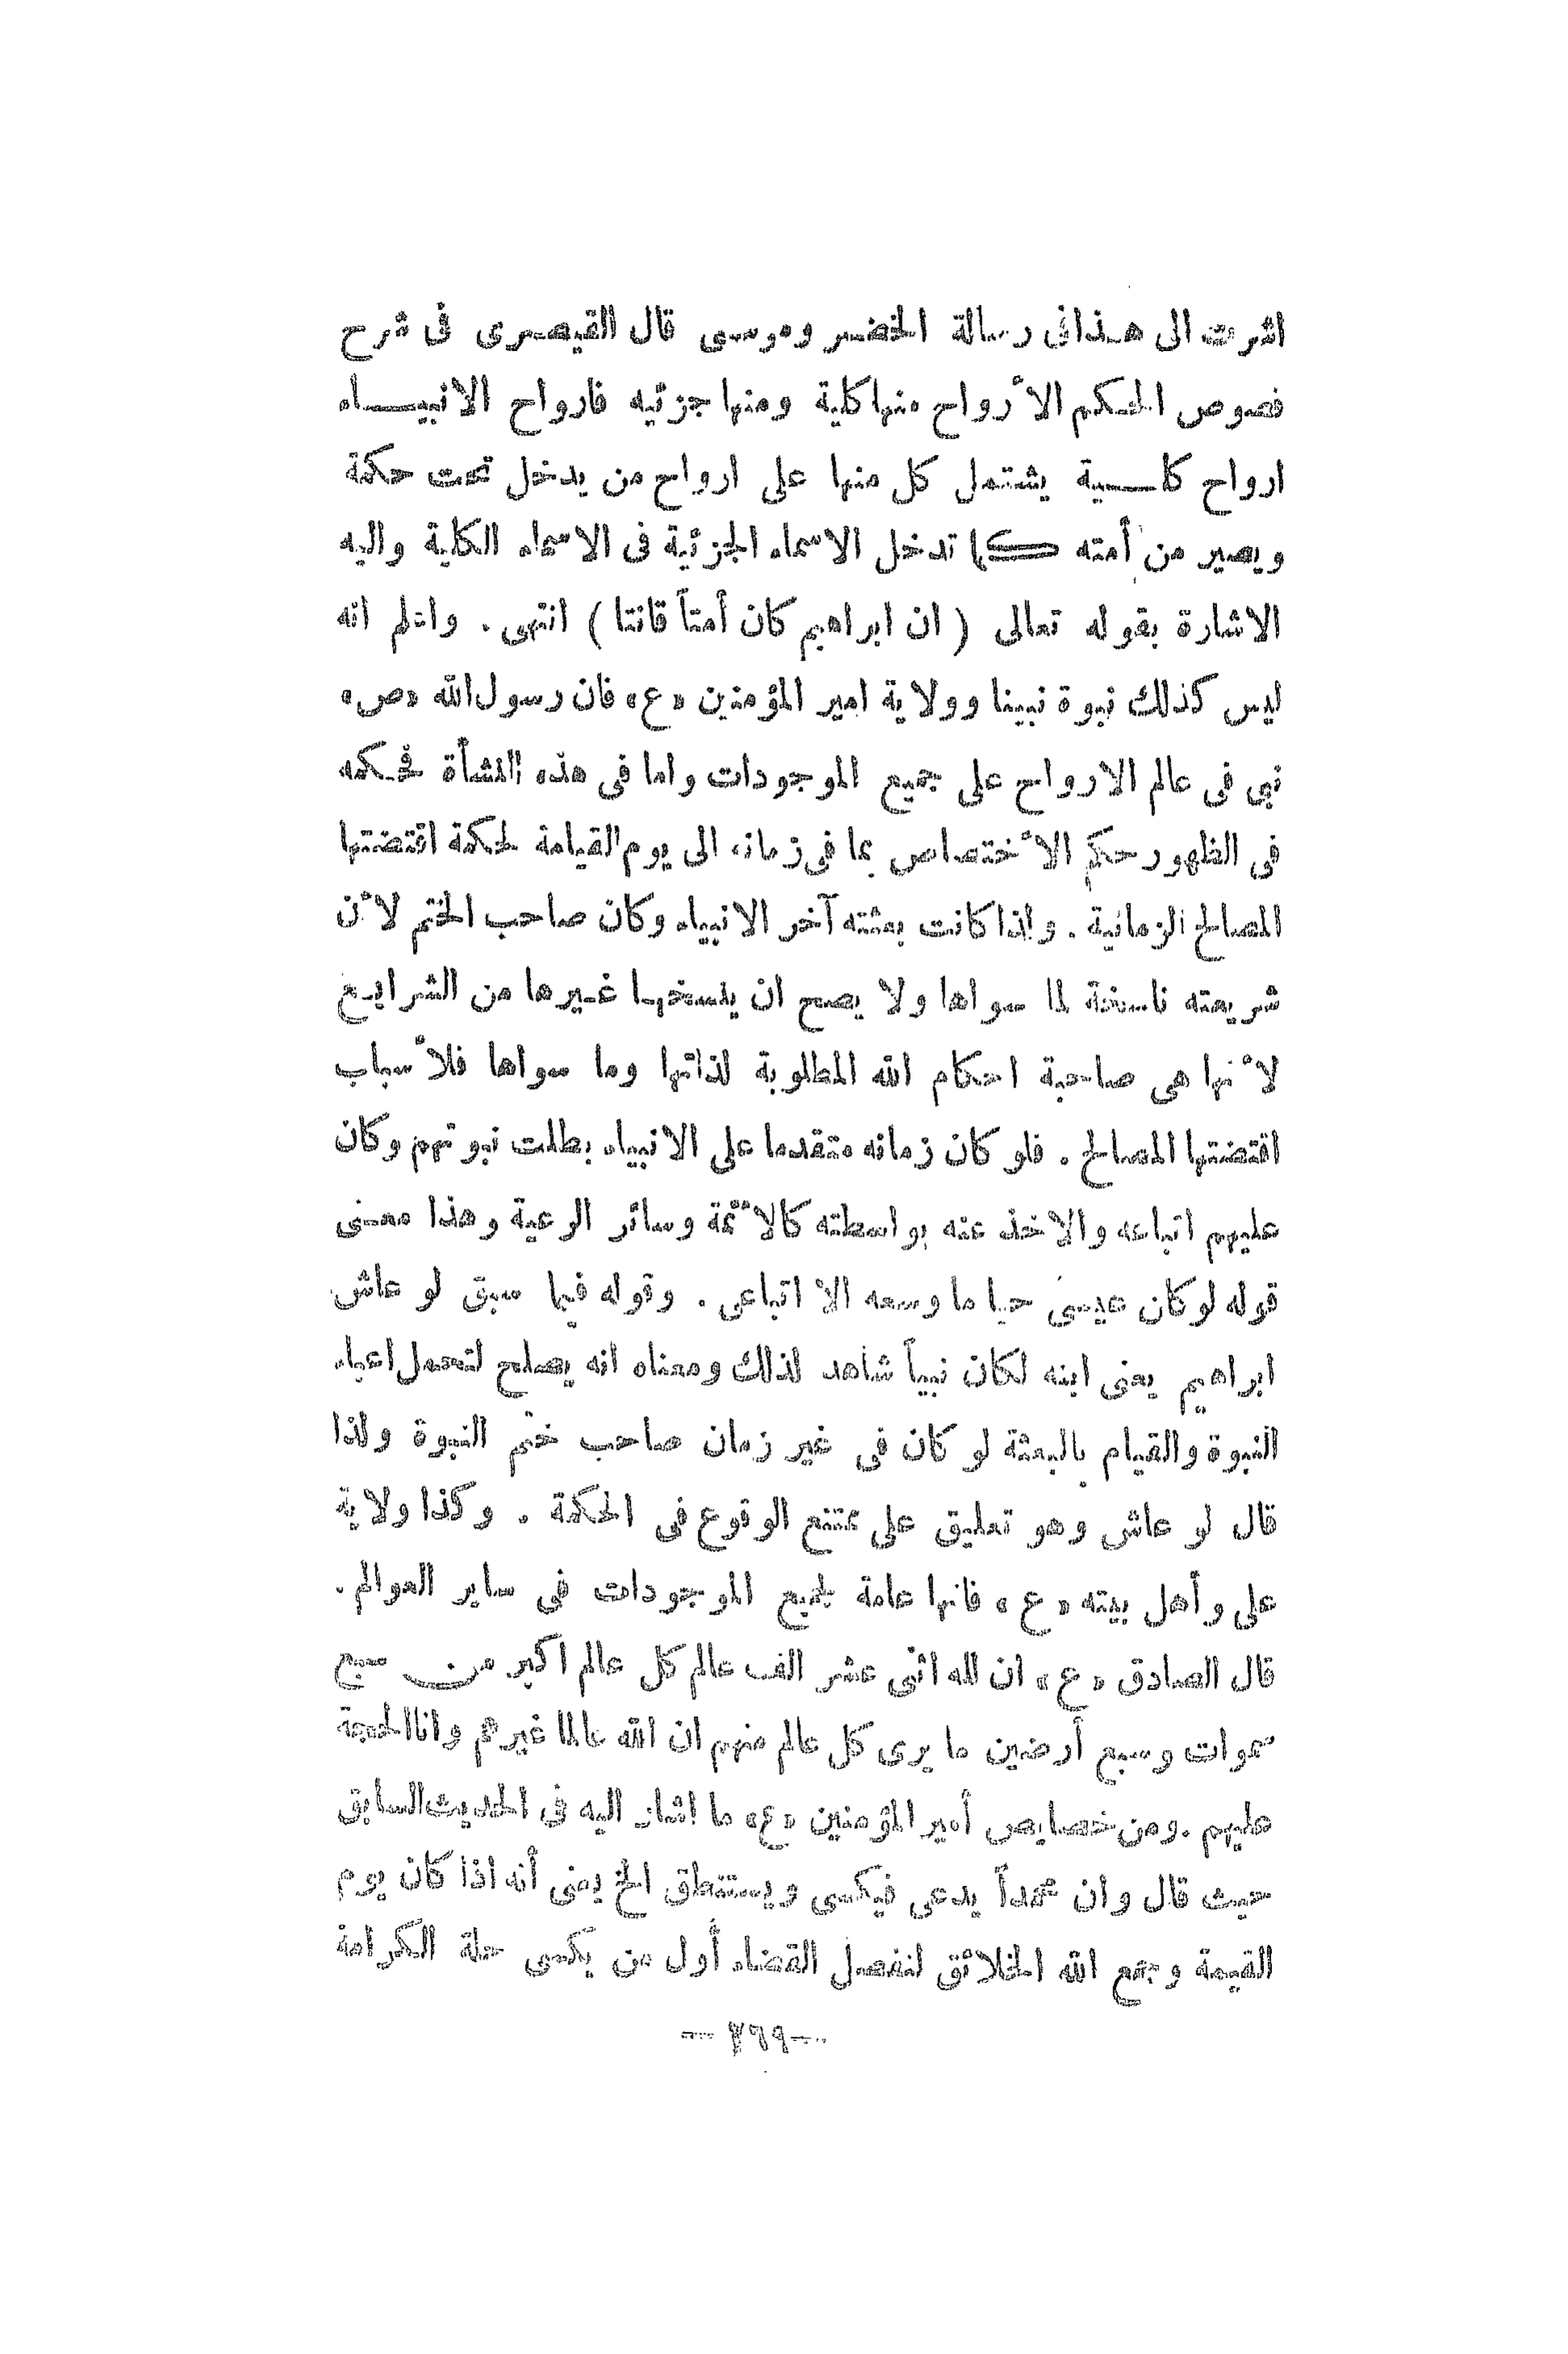 اشرت الى هـذا فى رسالة الخضـر وموسى قال القيصرى فى شرح
فصوص الحكم الأرواح منها كلية ومنها جزئيه فارواح الانبيـــاء
ارواح كلـــية يشتمل كل منها على ارواح من يدخل تحت حكمة
ويصير من أمته كما تدخل الاسماء الجزئية فى الاسماء الكلية واليه
الاشارة بقوله تعالى ( ان ابراهيم كان أمتاً قانتا ) انتهى . واعلم انه
ليس كذلك نبوة نبينا وولاية امير المؤمنين «ع» فان رسول الله «ص»
نبى فى عالم الارواح على جميع الموجودات واما فى هذه النشأة فحكمه
فى الظهور حكم الأختصاص بما فى زمانه الى يوم القيامة لحكمة اقتضتها
المصالح الزمانية . واذا كانت بعثته آخر الانبياء وكان صاحب الختم لأن
شريعته ناسخة لما سواها ولا يصح ان ينسخها غيرها من الشرايع
لأنها هى صاحبة احكام الله المطلوبة لذاتها وما سواها فلأسباب
اقتضتها المصالح . فلو كان زمانه متقدما على الانبياء بطلت نبوتهم وكان
عليهم اتباعه والاخذ عنه بواسطته كالأئمة وسائر الرعية وهذا معنى
قوله لو كان عيسى حيا ما وسعه الا اتباعى . وقوله فيما سبق لو عاش
ابراهيم يعنى ابنه لكان نبياً شاهد لذلك ومعناه انه يصلح لتحمل اعباء
النبوة والقيام بالبعثة لو كان فى غير زمان صاحب ختم النبوة ولذا
قال لو عاش وهو تعليق على ممتنع الوقوع فى الحكمة . وكذا ولاية
على وأهل بيته «ع» فانها عامة لجميع الموجودات فى ساير العوالم .
قال الصادق «ع» ان لله اثنى عشر الف عالم كل عالم اكبر من سبع
سموات وسبع أرضين ما يرى كل عالم منهم ان الله عالما غيرهم وانا الحجة
عليهم . ومن خصايص أمير المؤمنين «ع» ما اشار اليه فى الحديث السابق
حيث قال وان محمداً يدعى فيكسى ويستنطق الخ يعنى أنه اذا كان يوم
القيمة وجمع الله الخلائق لنفصل القضاء أول من يكسى حلة الكرامة
— ٣٦٩ —